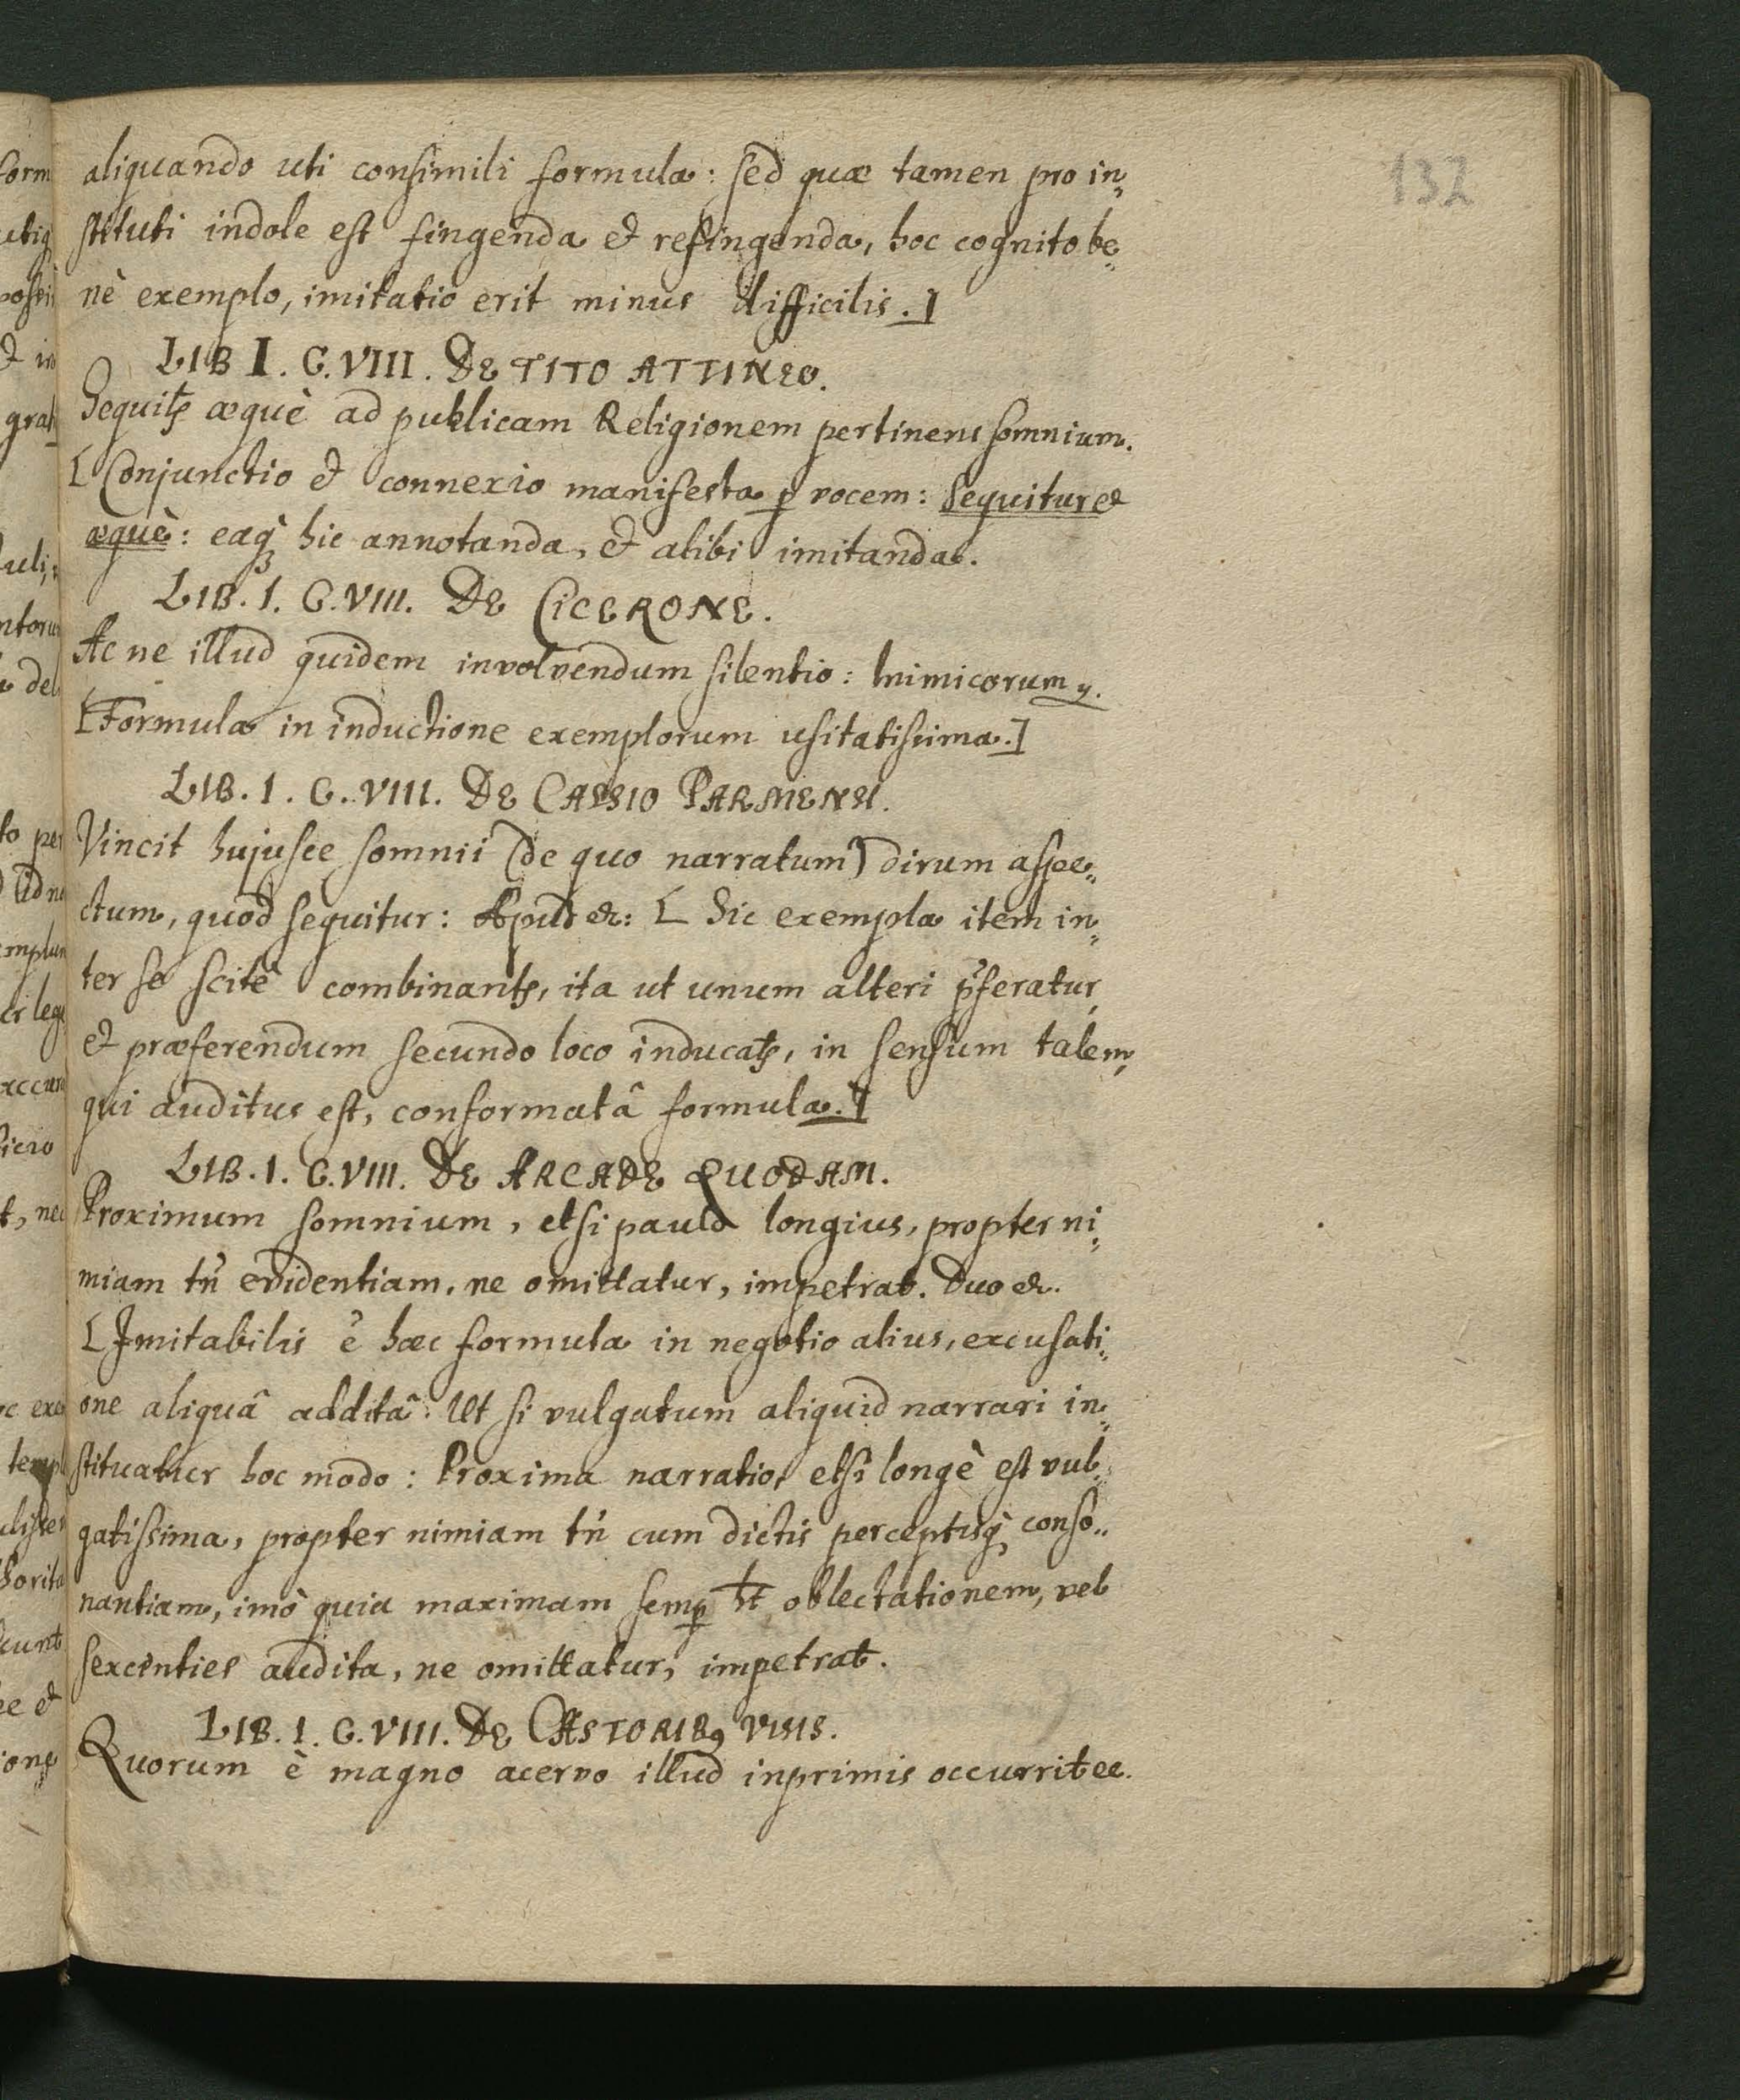 132
aliquando uti consimili formula: sed quæ tamen pro in„
stituti indole est fingenda et refingenda, hoc cognito be„
nè exemplo, imitatio erit minus difficilis.]
LIB I. C. VIII. DE TITO ATTINEO.
Sequitr æquè ad publicam Religionem pertinens somnium.
[Conjunctio et connexio manifesta ꝑ vocem: Sequitur et
æquè: eaqꝫ hic annotanda, et alibi imitanda.
LIB. I. C. VIII. DE CICERONE.
Ac ne illud quidem involvendum silentio: Inimicorum
[Formula in inductione exemplorum usitatissima.]
LIB. I. C. VIII. DE CASSIO PARMENSI.
Vincit hujusce somnii (de quo narratum) dirum aspe„
ctum, quod sequitur: Apud &. [Sic exempla item in„
ter se scitè combinantr, ita ut unum alteri p̄feratur,
et præferendum secundo loco inducatr, in sensum talem,
qui auditus est, conformatâ formula.]
LIB. I. C. VIII. DE ARCADE QUODAM.
Proximum somnium, etsi paulò longius, propter ni„
miam tn̄ evidentiam, ne omittatur, impetrat. Duo &.
[Imitabilis ē hæc formula in negotio alius, excusati„
one aliquâ additâ. Ut si vulgatum aliquid narrari in„
stituatur hoc modo: Proxima narratio, etsi longè est vul„
gatissima, propter nimiam tn̄ cum dictis perceptisqꝫ conso„
nantiam, imò quia maximam semꝑ ht oblectationem, vel
sexcenties audita, ne omittatur, impetrat.
LIB. I. C. VIII. DE CASTORIBꝰ VISIS.
Quorum è magno acervo illud inprimis occurrit &c.